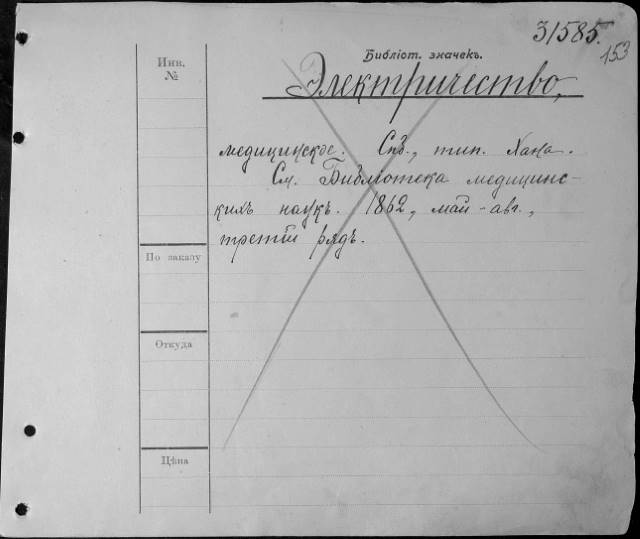 31585.
153
Библіот. значекъ.
Инв.
№
Электричество,
медицинское. Спб., тип. Хана.
См. Библіотека медицинс-
кихъ наукъ. 1862, май-авг.,
третій рядъ.
По заказу
Откуда
Цѣна